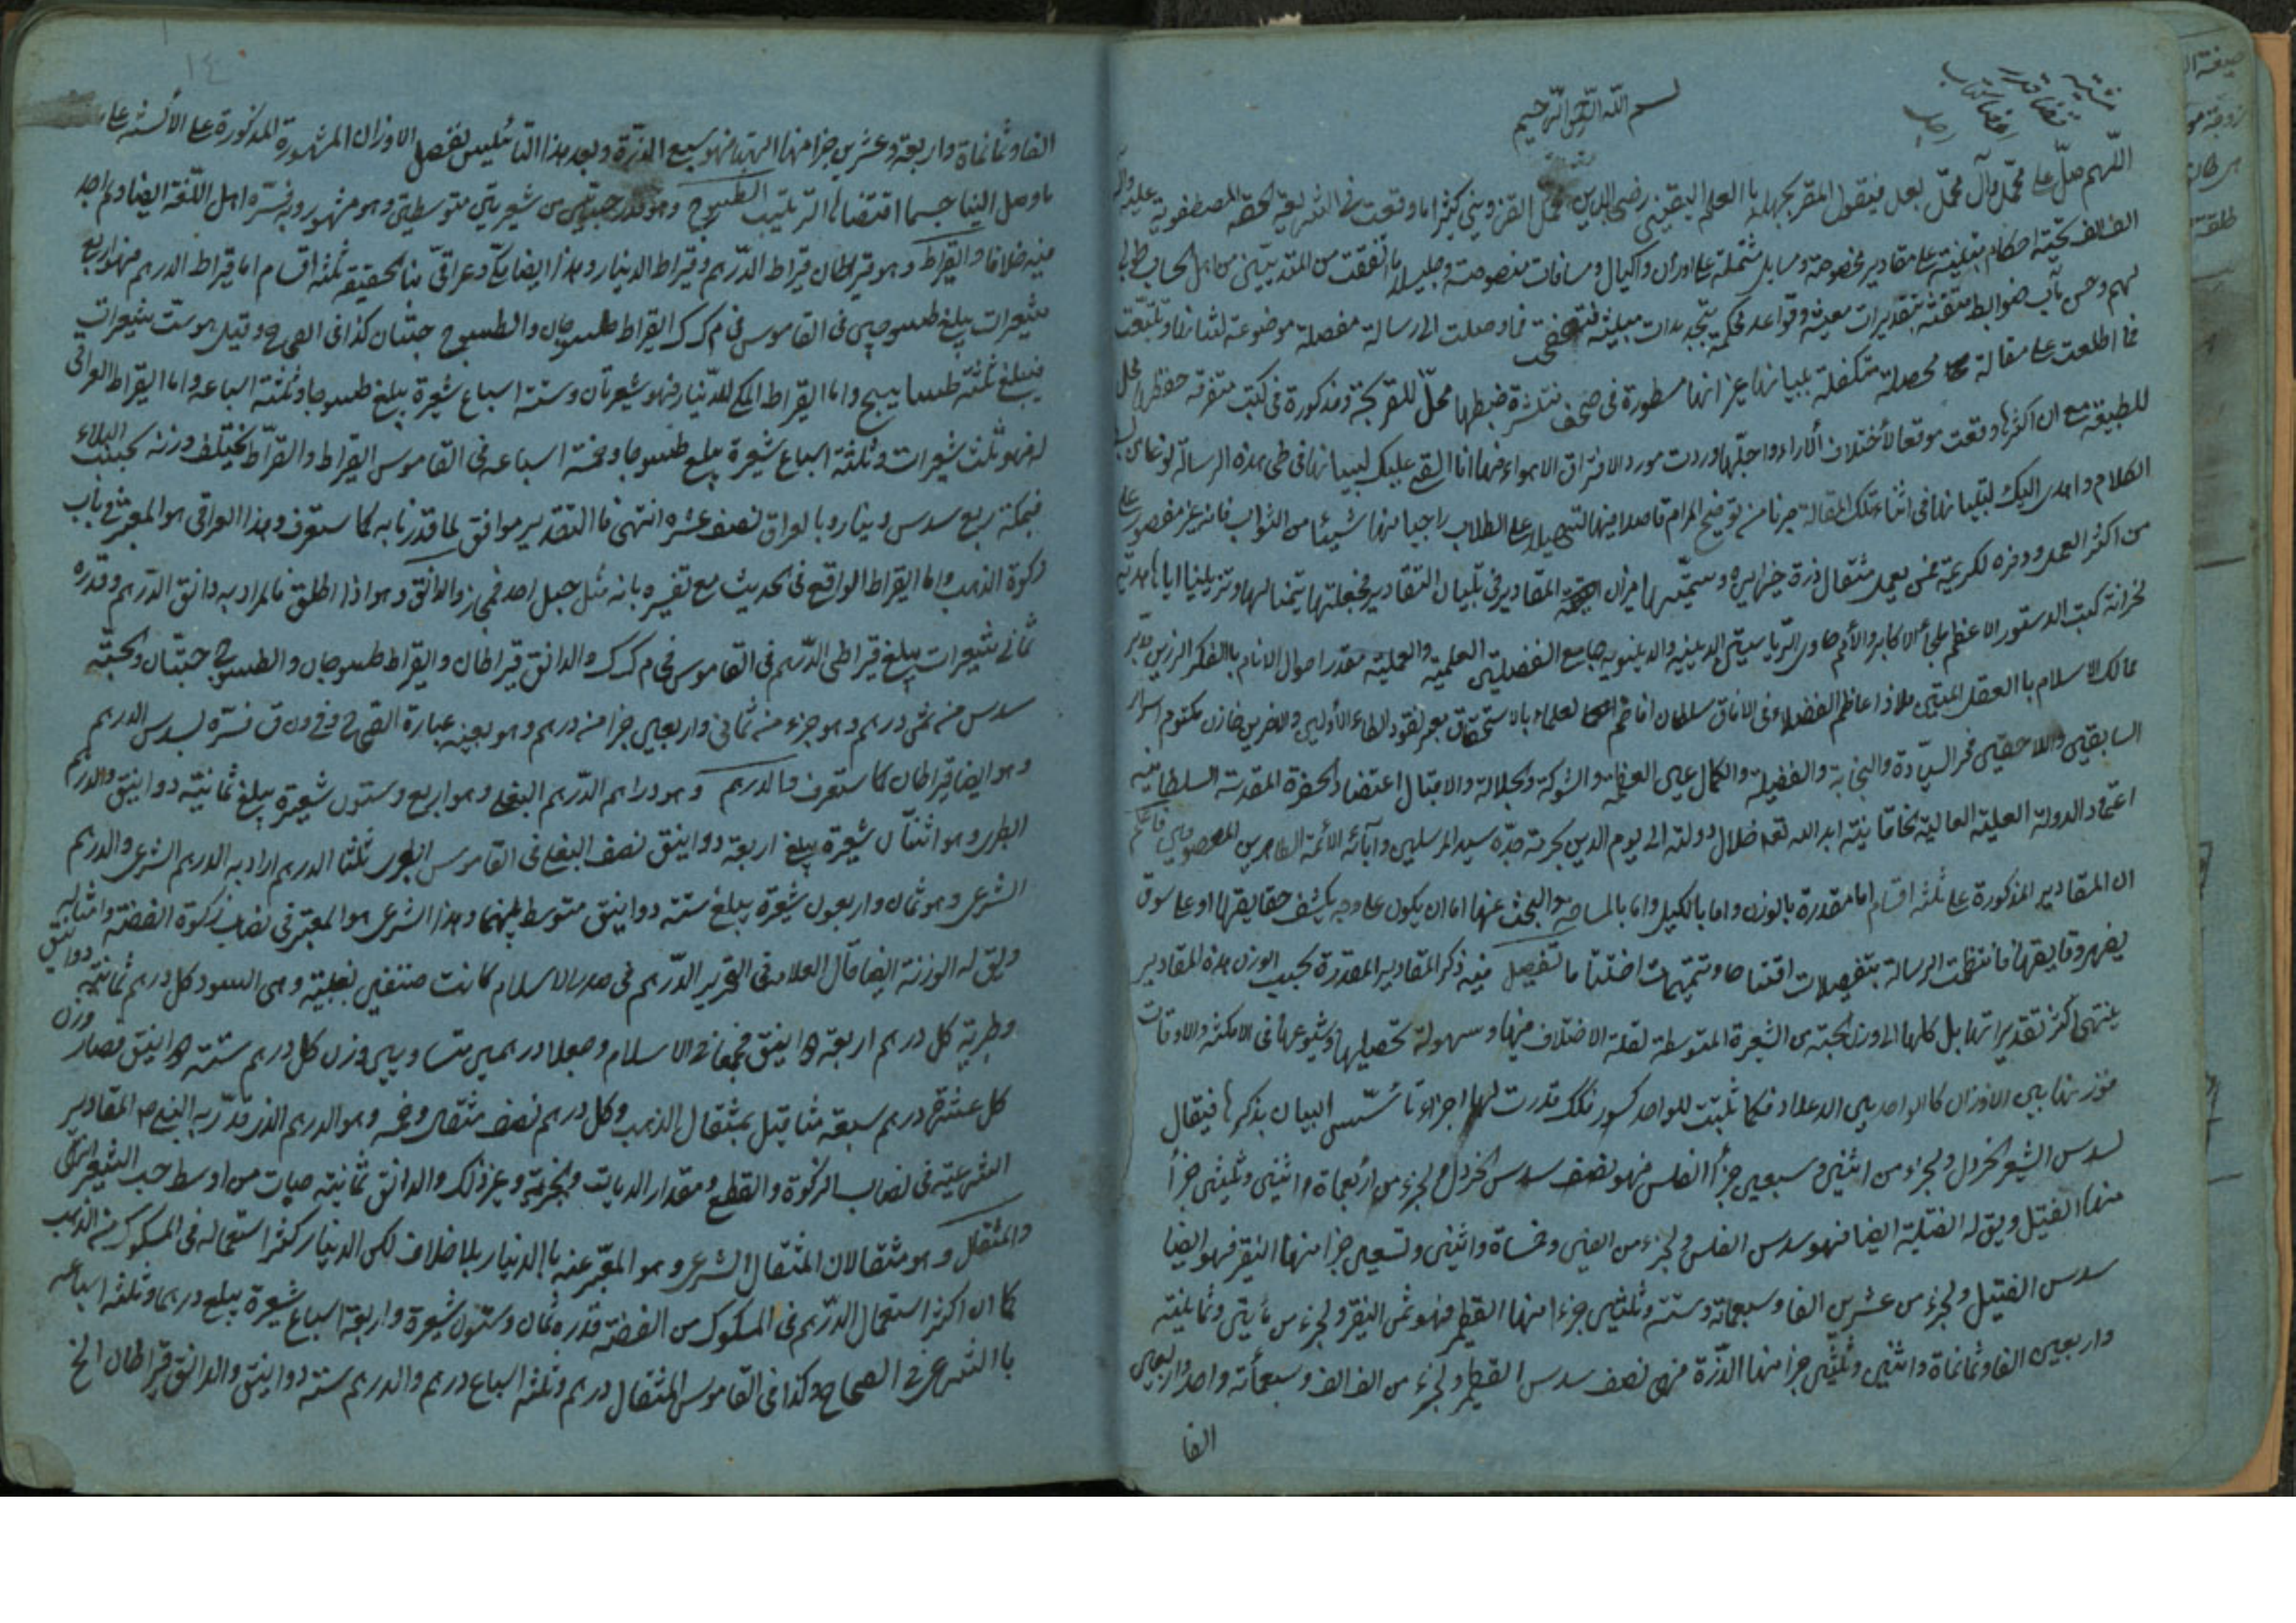 بسم الله الرحمن الرحيم
اللهم صل على محمد وآل محمد بعد فيقول المقر بجهله بالعلم اليقيني رضي الدين محمد القزويني كثيرا ما وقعت في الشريعة الحقة المصطفوية عليه وآله
الف الف تحية احكام مبتنية على مقادير مخصوصة ومسايل مشتملة على اوزان واكيال ومسافات منصوصة وجليلة ما اتفقت من المتدينين من اهل الحساب طوبى
لهم وحسن مآب ضوابط متقنة بتقديرات معينة وقواعد محكمة بتجديدات مبينة فما وصلت الى رسالة مفصلة موضوعة لشانها وتتبعت
فما اطلعت على مقالة محصلة متكفلة ببيانها غير انها مسطورة في صحف منتشرة ضبطها محل للقريحة ومذكورة في كتب متفرقة حفظها محل
للطبيعة مع ان اكثرها وقعت موقعا لأختلاف الآراء واجلها وردت مورد الافتراق الاهواء فها انا القي عليك ببيانها في طي هذه الرسالة
الكلام واهدى اليك لتبيانها في اثناء تلك المقالة من توضيح المرام قاصدا فيها لتسهيله على الطلاب راجيا بها شيئا من الثواب فانه غير مقصور على
من اكثر العمل ووفره لكريمة فمن يعمل مثقال ذرة خيرا يره وسميتها ميزان المقادير في تبيان التقادير فجعلتها
لخزانة كتب الدستور الاعظم ملجأ الاكابر والأمم حاوى الرياستين الدينية والدنيوية جامع الفضيلتين العلمية والعملية مقدر احوال الانام بالفكر الرزين مدبر
ممالك الاسلام بالعقل المتين ملاذ اعاظم الفضلاء في الافاق سلطان افاخم العلماء بالاستحقاق الأولين والاخرين خازن مكتوم اسرار
السابقين واللاحقين فخر السيادة والنجابة والفضيلة والكمال عين العظمة والشوكة والجلالة والاقبال اعتضاد الحضرة المقدسة السلطانية
اعتماد الدولة العلية العالية الخاقانية ابد الله تعه ظلال دولته الى يوم الدين بحرمة جده سيد المرسلين وآبائه الأئمة الطاهرين المعصومين فاعلم
ان المقادير المذكورة على ثلثة اقسام اما مقدرة بالوزن واما بالكيل واما بالمساحة والبحث عنها اما ان يكون على وجه يكشف حقايقها او على سوق
يضهر دقايقها فانتظمت الرسالة بتفصيلات اقتناصا وتتميمات اختتاما تفصيل فيه ذكر المقادير المقدرة بحسب الوزن هذه المقادير
ينتهى اكثر تقديراتها بل كلها الى وزن الحبة من الشعيرة المتوسطة لقلة الاختلاف فيها وسهولة تحصيلها وشيوعها في الامكنة والاوقات
فوزنها بين الاوزان كالواحد بين الاعداد فكما ثبتت للواحد كسور تلك قدرت لها اجزاء تأسس البيان بذكرها فيقال
لسدس الشعير الخردل ولجزء من اثنين وسبعين جزأ الفلس فهو نصف سدس الخردل ولجزء من أربعمأة واثنين وثلثين جزأ
منها الفتيل ويق له الفتيلة ايضا فهو سدس الفلس ولجزء من الفين وخمسمأة واثنين وتسعين جزا منها النقير فهو ايضا
سدس الفتيل ولجزء من عشرين الفا وسبعمائة وستة وثلثين جزءا منها القطمير فهو ثمن النقير ولجزء من مأيتين وثمانية
واربعين الفا وثمانمأة واثنين وثلثين جزا منها الذرة فهى نصف سدس القطمير ولجزء من الف الف وسبعمأة واحد واربعين
الفا
١٤
الفا وثمانمأة واربعة وعشرين جزا منها الهباء فهو سبع الذرة وبعد هذا التأسيس نفصل الاوزان المشهورة المذكورة على الألسنة على
ما وصل الينا حسبما اقتضاه الترتيب الطسوج وهو قدر حبتين من شعيرتين متوسطتين وهو مشهور وبه فسره اهل اللغة ايضا ولم اجد
فيه خلافا والقيراط وهو قيراطان قيراط الدرهم وقيراط الدينار وهذا ايضا مكى وعراقى فبالحقيقة ثلثة اقسام اما قيراط الدرهم فهو اربع
شعيرات يبلغ طسوجين في القاموس في م ك ك القيراط طسوجان والطسوج حبتان كذا في الصحاح وقيل هو ست شعيرات
فيبلغ ثلثة طساسيج واما القيراط المكى للدنيار فهو شعيرتان وستة اسباع شعيرة يبلغ طسوجا وثلثة اسباعه واما القيراط العراقى
له فهو ثلث شعيرات وثلثة اسباع شعيرة يبلغ طسوجا وخمسة اسباعه في القاموس القيراط والقراط يختلف وزنه بحسب البلاد
فبمكة ربع سدس دينار وبالعراق نصف عشره انتهى فالتقدير موافق لما قدرنا به كما ستعرف وهذا العراقى هو المعتبر في باب
زكوة الذهب واما القيراط الواقع في الحديث مع تفسيره بانه مثل جبل احد فمجاز والدانق وهو اذا اطلق فالمراد به دانق الدرهم وقدره
ثماني شعيرات يبلغ قيراطى الدرهم في القاموس في م ك ك والدانق قيراطان والقيراط طسوجان والطسوج حبتان والحبة
سدس من ثمن درهم وهو جزء من ثمانى واربعين جزا من درهم وهو بعينه عبارة الصحاح وفي د ن ق فسره بسدس الدرهم
وهو ايضا قيراطان كما ستعرف والدرهم وهو دراهم الدرهم البغلى وهو اربع وستون شعيرة يبلغ ثمانية دوانيق والدرهم
الطبرى وهو اثنان شعيرة يبلغ اربعة دوانيق نصف البغلى في القاموس الطبرى ثلثا الدرهم اراد به الدرهم الشرعى والدرهم
الشرعى وهو ثمان واربعون شعيرة يبلغ ستة دوانيق متوسط بينهما وهذا الشرعى هو المعتبر في نصاب زكوة الفضة وامثاله
ويق له الوزنة ايضا قال العلامة في التحرير الدرهم في صدر الاسلام كانت صنفين بغلية وهى السود كل درهم ثمانية دوانيق
وطبرية كل درهم اربعة دوانيق فجمعا في الاسلام وجعلا درهمين متساويين وزن كل درهم ستة دوانيق فصار وزن
كل عشرة درهم سبعة مثاقيل بمثقال الذهب وكل درهم نصف مثقال وخمسه وهو الدرهم الذى قدر به النبى ص المقادير
الشرعية في نصاب الزكوة والقطع ومقدار الديات والجزية وغير ذلك والدانق ثمانية حبات من اوسط حب الشعير انتهى
والمثقال وهو مثقالان المثقال الشرعى وهو المعبر عنه بالدنيار بلا خلاف لكن الدينار كثر استعماله في المسكوك من الذهب
كما ان اكثر استعمال الدرهم في المسكوك من الفضة قدره ثمان وستون شعيرة واربعة اسباع شعيرة يبلغ درهما وثلثة اسباعه
بالشرعى في الصحاح وكذا في القاموس المثقال درهم وثلثة اسباع درهم والدرهم ستة دوانيق والدانق قيراطان الخ